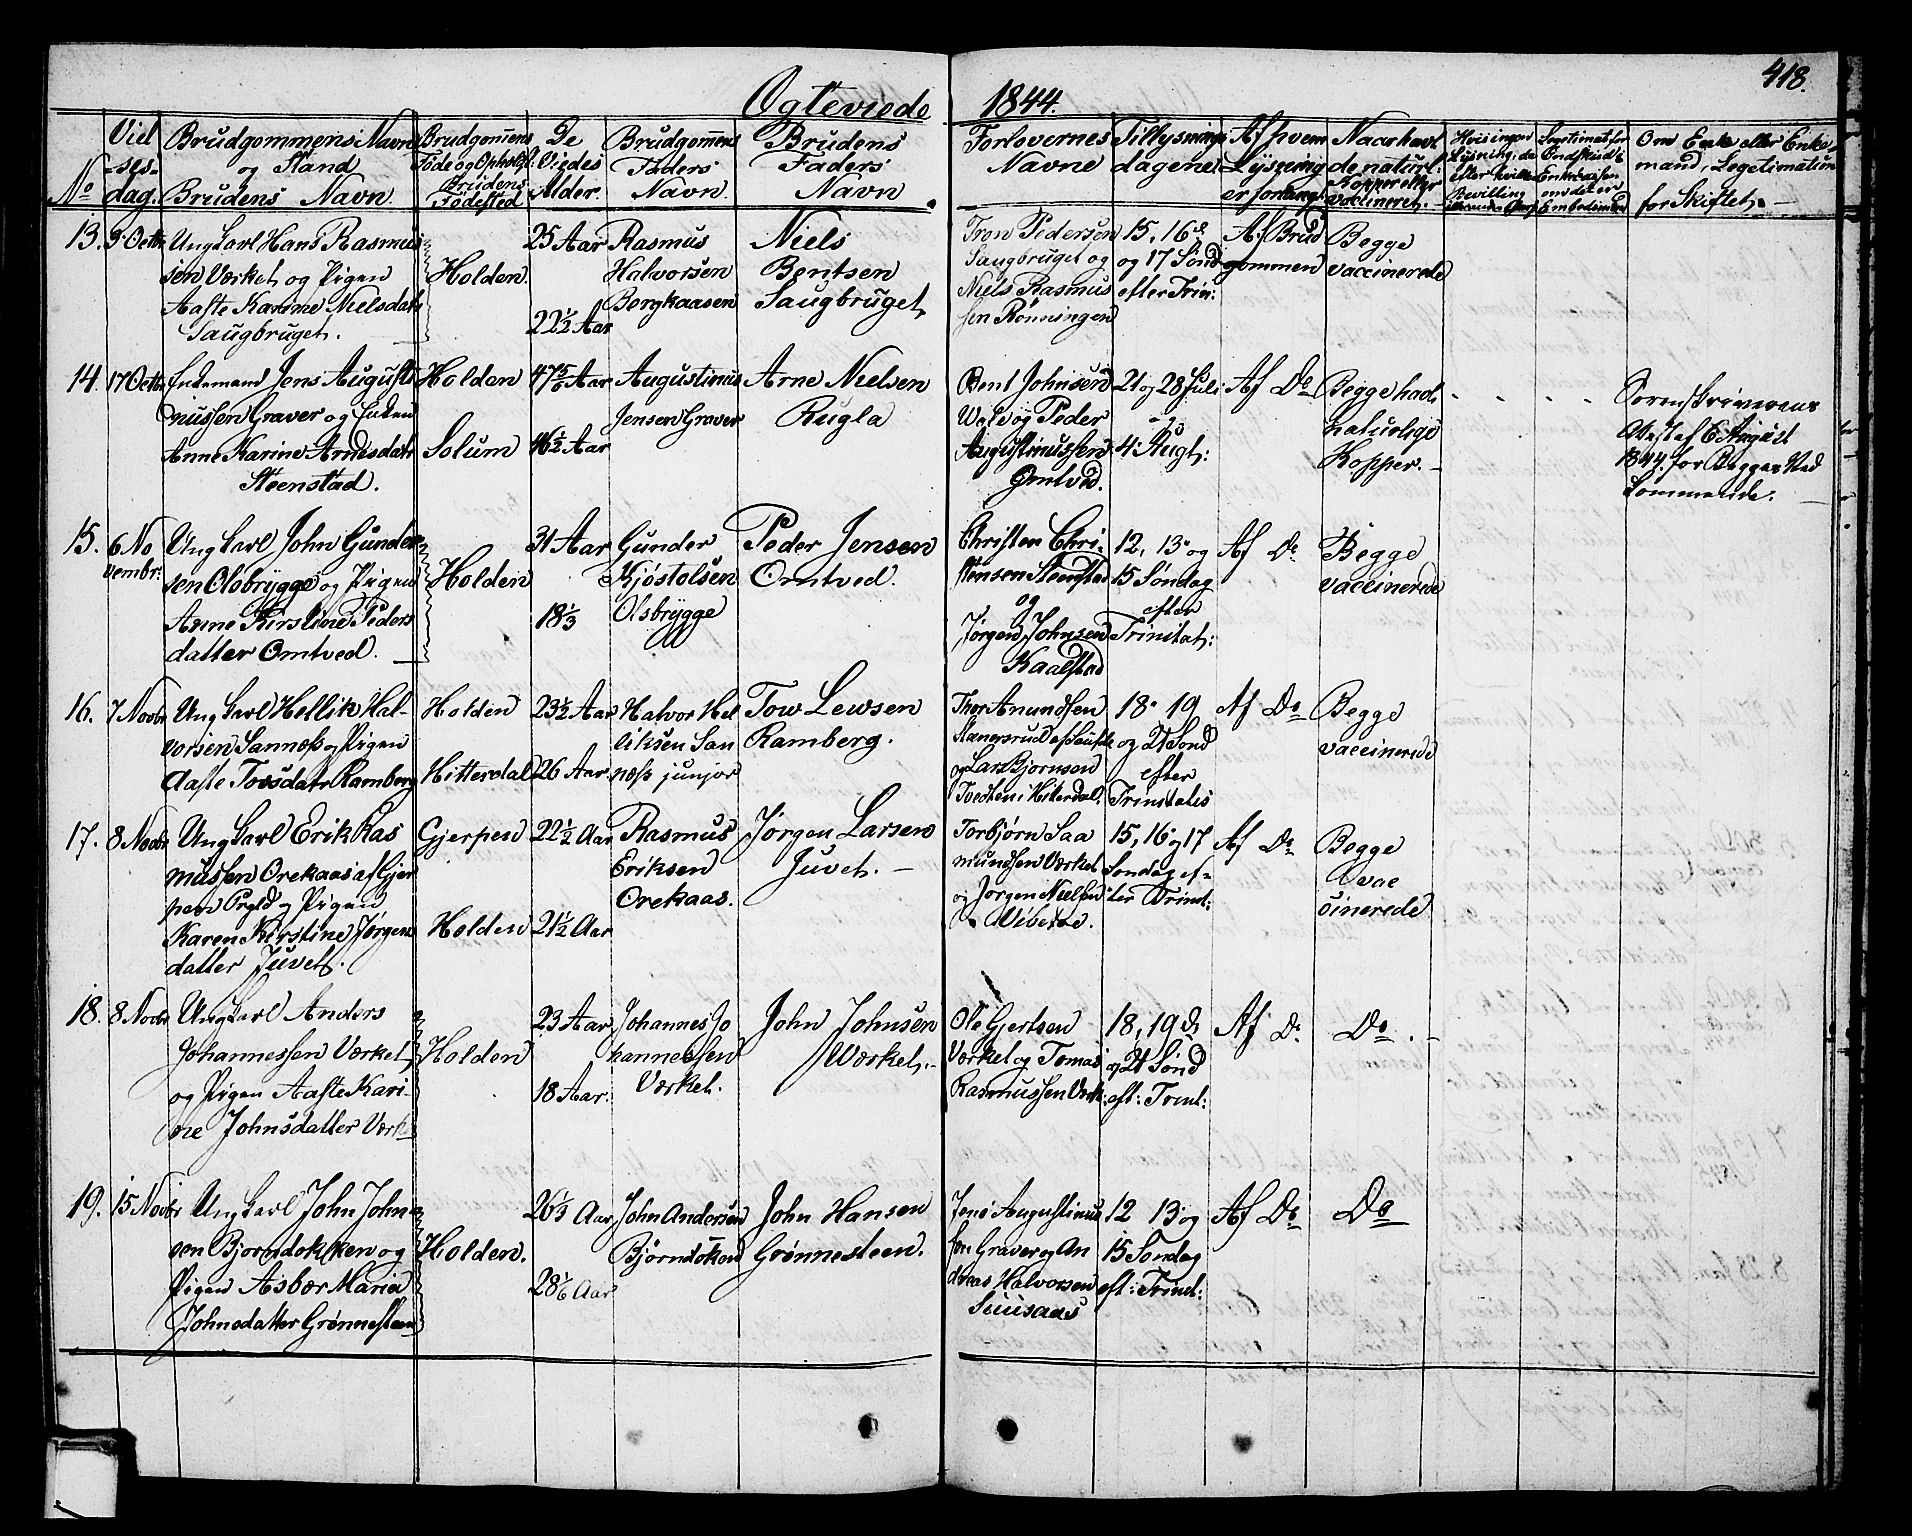 418.
Ogteviede 1844.
No
Viel
-ses-
dag.
Brudgommens Navn
og Stand
Brudens Navn
Brudgomens
Føde og Opholds
Brudens
Fødested
De
Viedes
Alder.
Brudgomens
Faders
Navn
Brudens
Faders
Navn
Forlovernes
Navne
Tillysnings
dagene
Af hvem
Lysning
er forlangt
Naar havt
de naturl:
Kopper eller
vaccineret.
Hvis ingen
Lysning, da
efter hvilken
Bevilling
Om Enke eller Enke
mand, Legetimation
for Skiftet.
13.
5 Octbr
Ungkarl Hans Rasmus
sen Værket og Pigen
Aaste Karine Nielsdatr
Saugbruget.
Holden.
25 Aar
22½ Aar
Rasmus
Halvorsen
Bergkaasen
Niels
Bentsen
Saugbruget
Tron Pedersen
Saugbruget og
Niels Rasmus
sen Rønningen
15, 16de
og 17 Sønd
efter Trin:
Af Brud
gommen
Begge
vaccinerede
14.
17 Octbr
Enkemand Jens Augusti
nussen Graver og Enken
Anne Karine Arnesdatr
Steenstad.
Holden
Solum
47 5/6 Aar
46½ Aar
Augustinus
Jensen Graver
Arne Nielsen
Rugla
Bent Johnsen
Vala og Peder
Augustinussen
Omtved.
21 og 28 Juli
og
4 Augt:
Af Do
Begge havt
naturlige
Kopper.
Sorenskriverens
Atest af 6 August
1844 for Begges Ved
kommende.
15.
6 No
vembr:
Ungkarl John Gunder
sen Olsbrygge og Pigen
Anne Kirstine Peders
datter Omtved.
Holden
31 Aar
18⅓
Gunder
Kjøstolsen
Olsbrygge
Peder Jensen
Omtved.
Christen Chri-
stensen Steenstad
og
Jørgen Johnsen
Kaasa
12, 13 og
15 Søndag
efter
Trinitat:
Af Do
Begge
vaccinerede
16.
7 Novbr
Ungkarl Hellik Hal-
vorsen Sannæss og Pigen
Aaste Torsdatr Ramberg
Holden
Hitterdal
23½ Aar
26 Aar
Halvor Hel
liksen San
næss junjor
Tow Lewsen
Ramberg.
Thor Anundsen
og Lars Bjornsen
Tvedten i Hiterdal
18. 19
og 21 Sønd
efter
Trinitatis
Af Do
Begge
vaccinerede
17.
8 Novbr
Ungkarl Erik Ras
mussen Orekaas af Gjer
pen Prgld og Pigen
Karen Kirstine Jørgens
datter Juvet.
Gjerpen
Holden
22½ Aar
21½ Aar
Rasmus
Eriksen
Orekaas.
Jørgen Larsen
Juvet.
Torbjørn Saa
mundsen Værket
og Jørgen Nielsen
Vibetoe.
15, 16 og 17
Søndag ef-
ter Trinit:
Af Do
Begge
vac
cinerede
18.
8 Novbr
Ungkarl Anders
Johannessen Værket
og Pigen Aaste Kari-
ne Johnsdatter Værke
Holden
23 Aar
18 Aar.
Johannes Jo
hannessen
Værket.
John Johnsen
Værket.
Ole Gjertsen
Værket og Tomas
Rasmussen Værk:
18, 19de
og 21 Sønd
eft: Trinit:
Af Do
Do
19.
15 Novbr
Ungkarl John John-
sen Bjorndokken og
Pigen Asbør Maria
Johnsdatter Grønnesteen
Holden.
26⅓ Aar
28 1/6 Aar
John Andersen
Bjørndoken
John Hansen
Grønnesteen.
Jens Augustinus
sen Graver og An
dreas Halvorsen
12 13 og
15 Søndag
eft: Trinit:
Af Do
Do